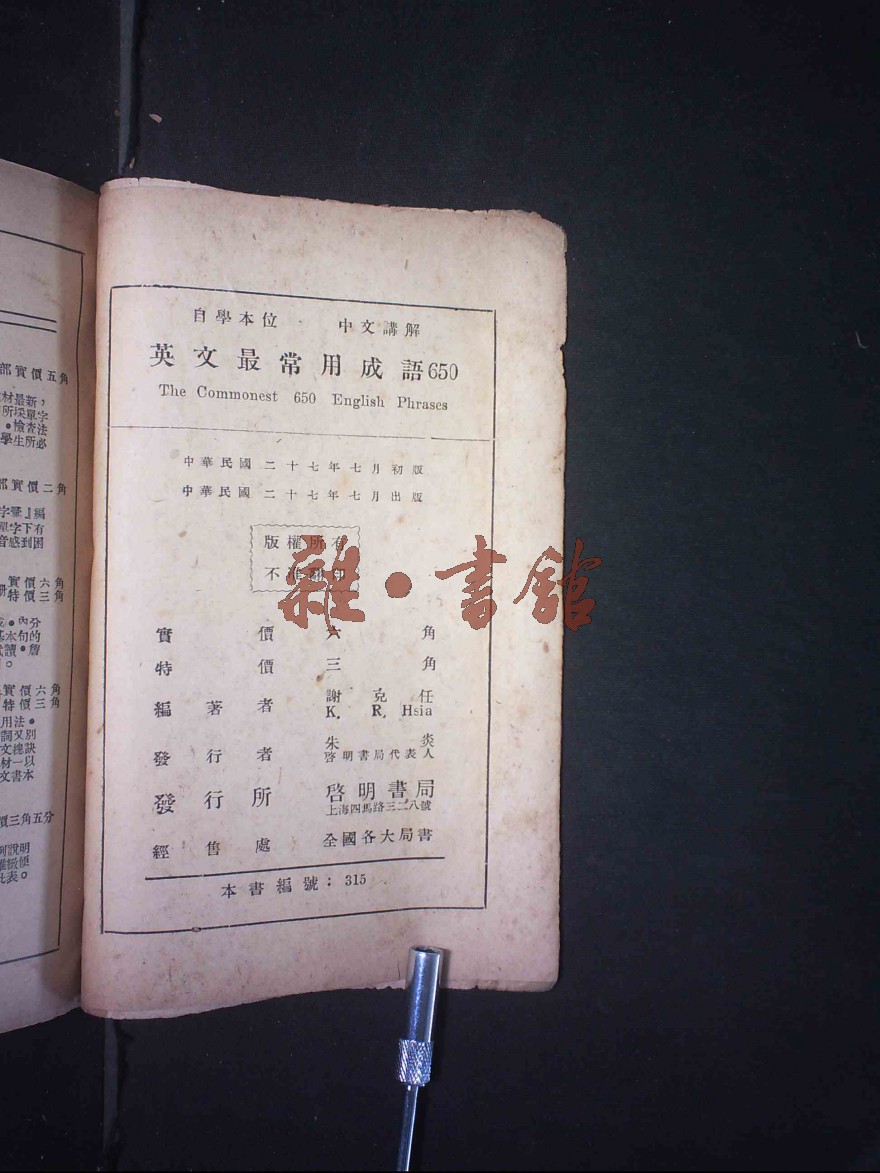 部實價五角
材最新，
所採單字
。檢查法
學生所必
部實價二角
單字下有
音感到困
實價六角
特價三角
基本句的
實價六角
特價三角
用法。
價三角五分
自學本位 中文講解
英文最常用成語650
The Commonest 650 English Phrases
中華民國二十七年七月初版
中華民國二十七年七月出版
版權所有
不准翻印
實價六角
特價三角
編著者 謝克任
K. R. Hsia
發行者 朱炎
啓明書局代表人
發行所 啓明書局
上海四馬路三二八號
經售處 全國各大局書
本書編號：315
雜·書館